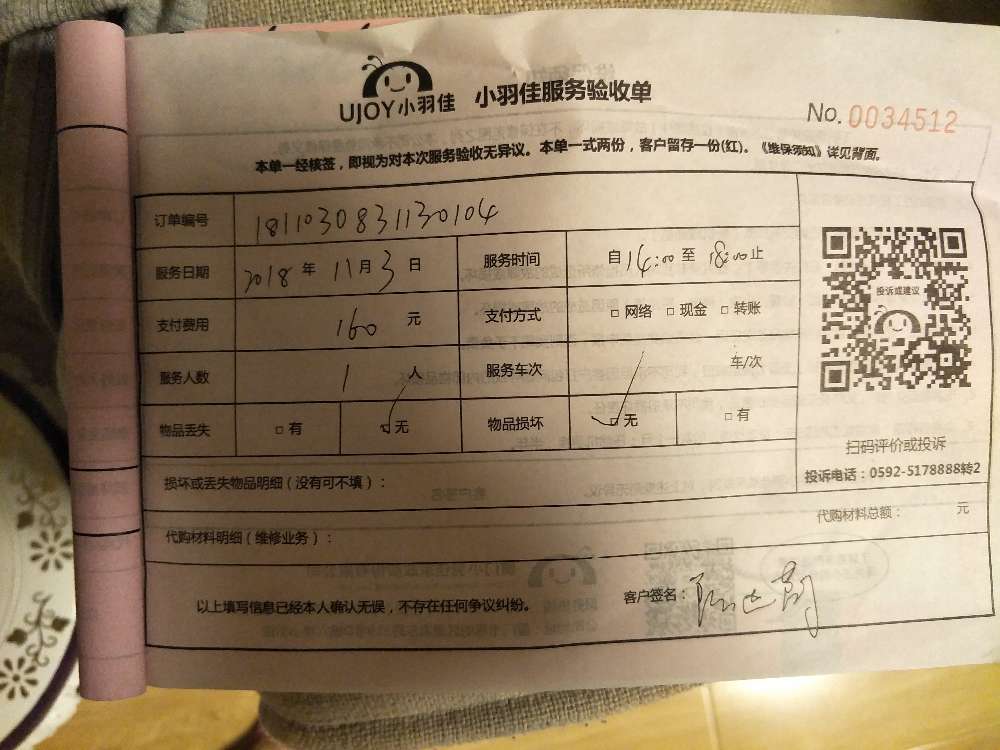 UJOY小羽佳 小羽佳服务验收单
No. 0034512
本单一经核签，即视为对本次服务验收无异议。本单一式两份，客户留存一份(红)。《维保须知》详见背面。
订单编号 1811030831130104
服务日期 2018 年 11 月 3 日 服务时间 自 14:00 至 18:00 止
支付费用 160 元 支付方式 □ 网络 □ 现金 □ 转账
服务人数 1 人 服务车次 车/次
物品丢失 □ 有 □ 无 物品损坏 □ 无 □ 有
投诉或建议
扫码评价或投诉
投诉电话：0592-5178888转2
损坏或丢失物品明细（没有可不填）：
代购材料明细（维修业务）： 代购材料总额： 元
以上填写信息已经本人确认无误，不存在任何争议纠纷。 客户签名：